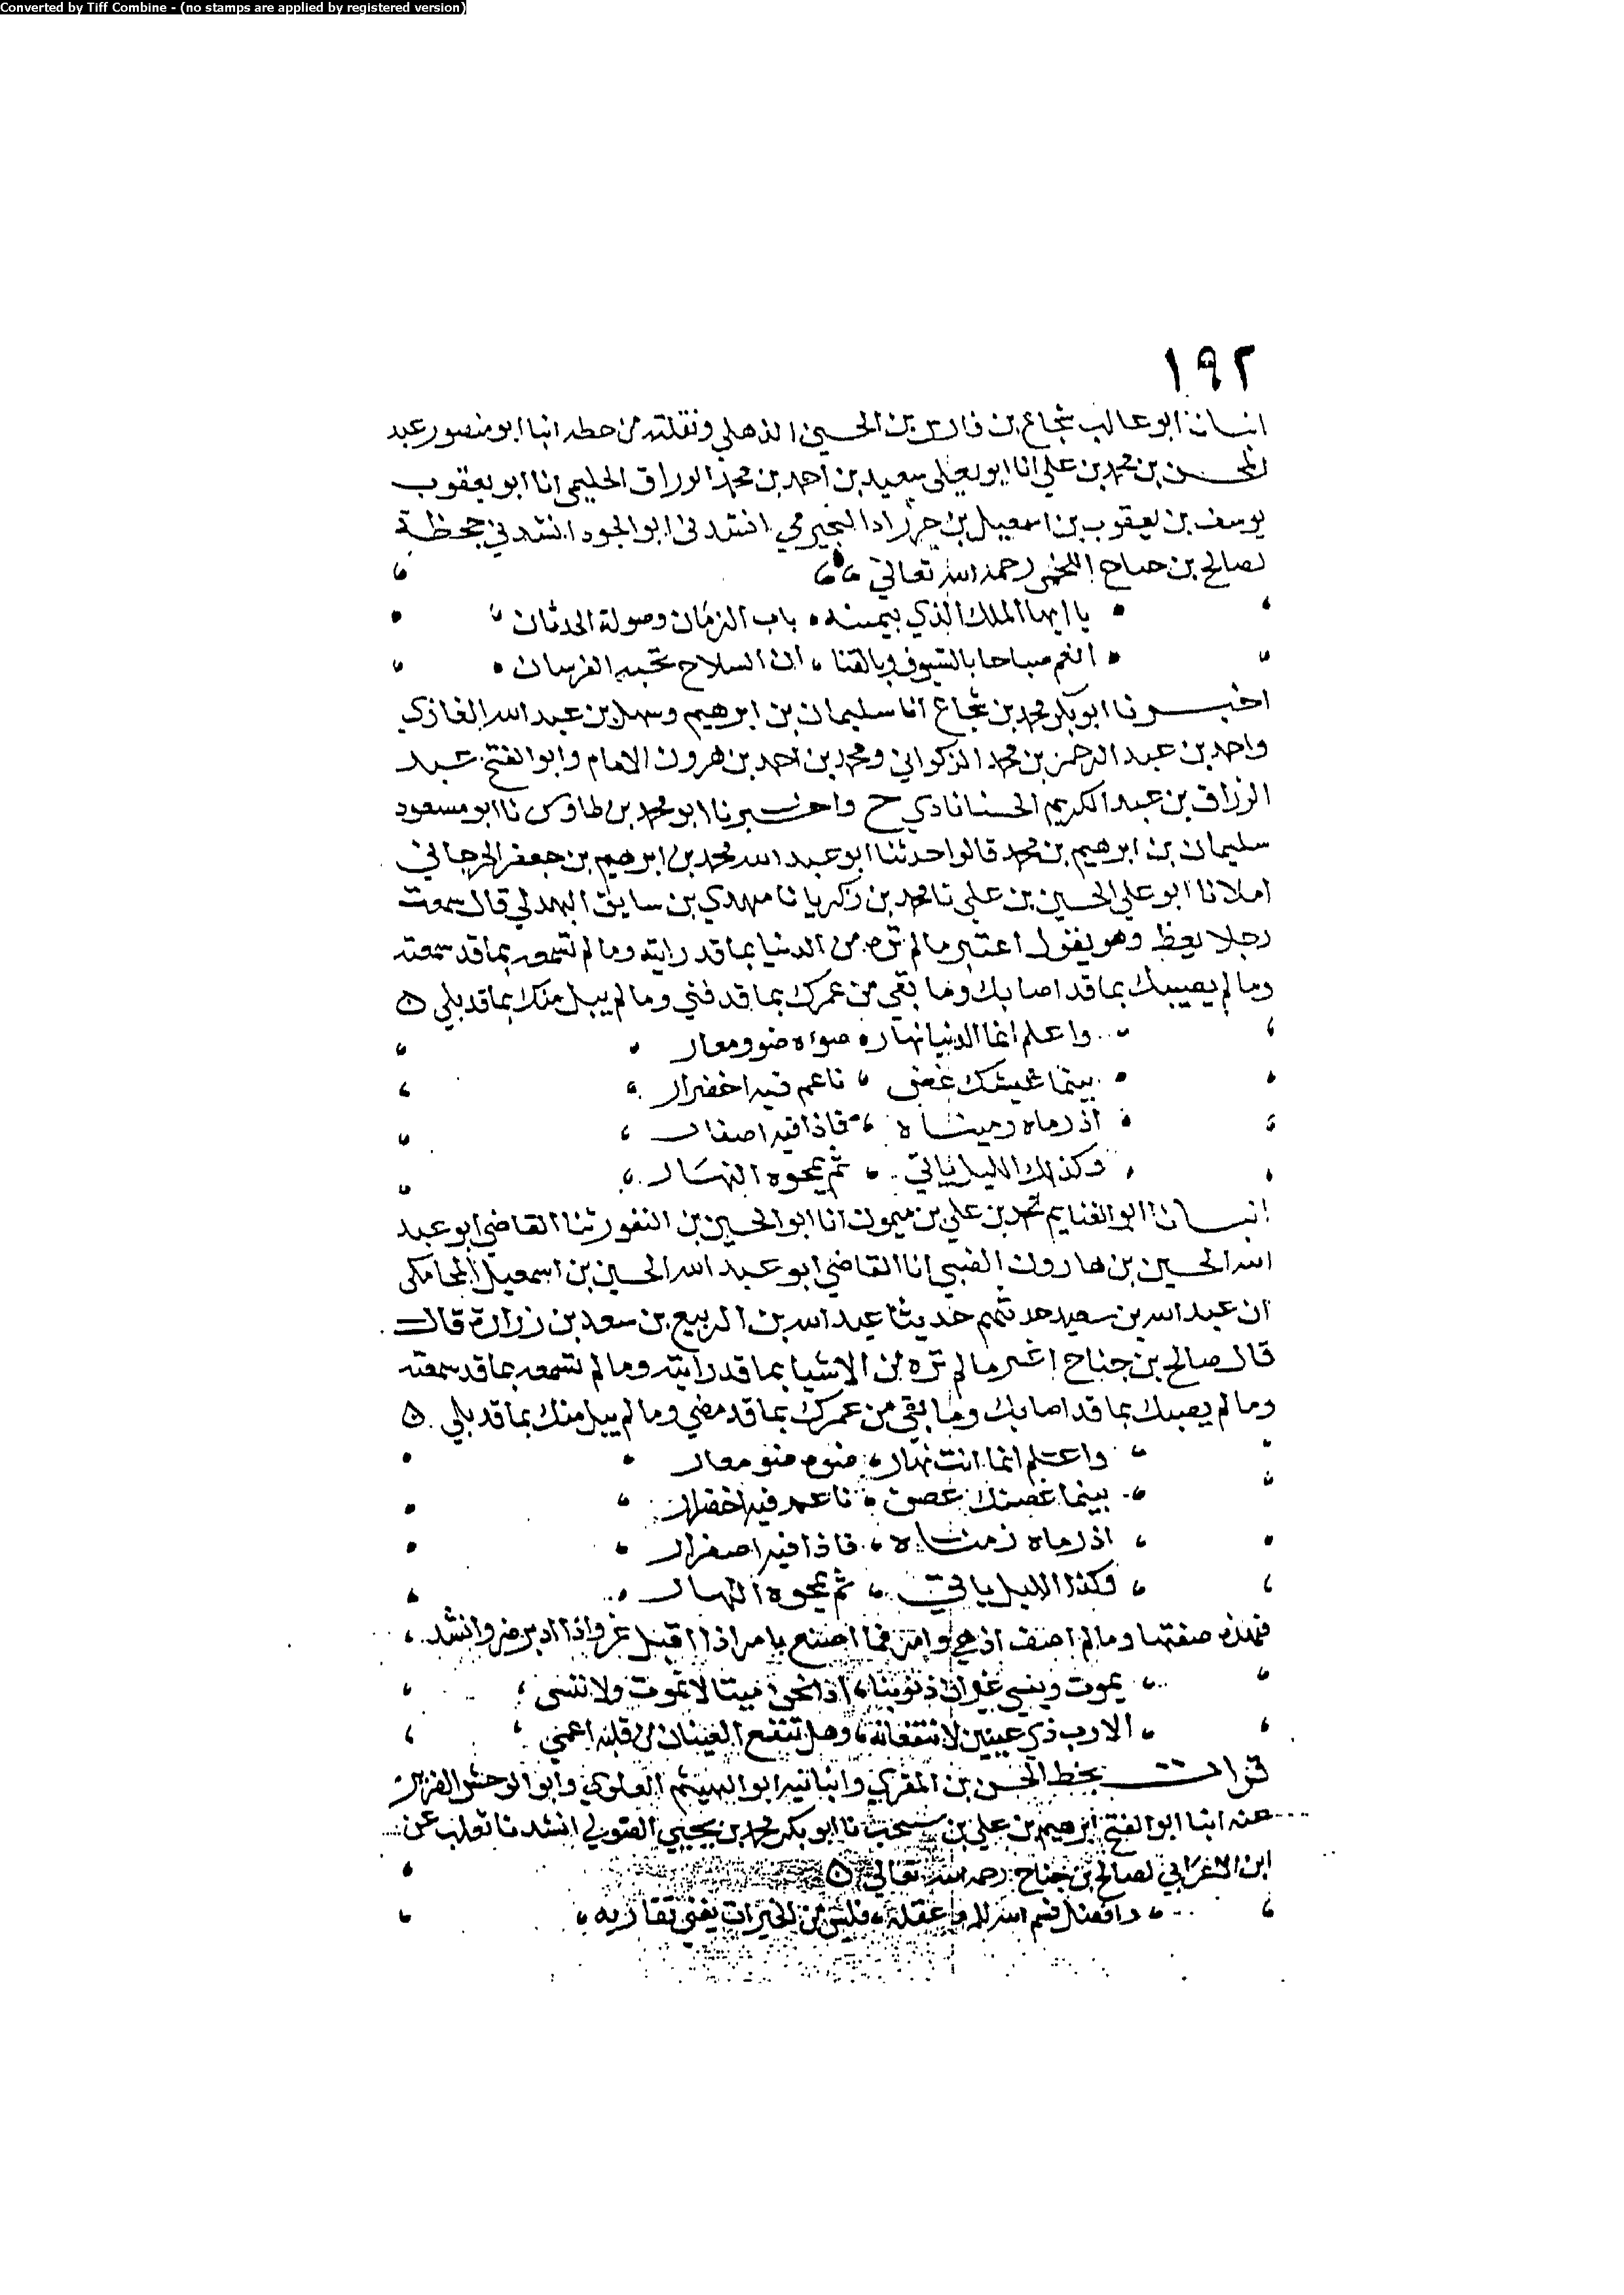 Converted by Tiff Combine - (no stamps are applied by registered version)
١٩٢
انبانا ابو غالب شجاع بن فارس بن الحسين الذهلي ونقلته من خطه انبا ابو منصور عبد
المحسن بن محمد بن علي انا ابو يعلى سعيد بن احمد بن محمد الوراق انا ابو يعقوب
يوسف بن يعقوب بن اسمعيل بن خرزاد النجيرمي انشدني ابو الجود انشدني جحظة
لصالح بن جناح اللخمي رحمه الله تعالى
يا ايها الملك الذي بيمينه باب الزمان وصولة الحدثان
انعم صباحا بالسيوف وبالقنا ان السلاح تحية الفرسان
اخبرنا ابو بكر محمد بن شجاع انا سليمان بن ابرهيم وسهل بن عبد الله الغازي
واحمد بن عبد الرحمن بن محمد الذكواني ومحمد بن احمد بن هرون الامام وابو الفتح عبد
الرزاق بن عبد الكريم الحسنابادي ح واخبرنا ابو محمد بن طاوس نا ابو مسعود
سليمان بن ابرهيم بن محمد قالوا حدثنا ابو عبد الله محمد بن ابرهيم بن جعفر الجرجاني
املا نا ابو علي الحسين بن علي نا محمد بن زكريا نا مهدي بن سابق البهدلي قال سمعت
رجلا يعظ وهو يقول اعتبر ما لم تره من الدنيا بما قد رايته وما لم تسمعه بما قد سمعته
وما لم يصيبك بما قد اصابك وما بقي من عمرك بما قد فني وما لم يبل منك بما قد بلي ۞
واعلم انما الدنيا نهار ضوءه ضو ومعار
بينما عيشك غض ناعم فيه اخضرار
اذ رماه زمناه فاذا فيه اصفار
وكذلك الليل ياتي ثم يمحوه النهار
انبانا ابو الغنايم محمد بن علي بن ميمون انا ابو الحسين بن النقور ثنا القاضي ابو عبد
الله الحسين بن هارون الضبي انا القاضي ابو عبد الله الحسين بن اسمعيل المحاملي
ان عبد الله بن سعيد حدثهم حديثا عبد الله بن الربيع بن سعد بن زرارة قال
قال صالح بن جناح اعتبر ما لم تره من الاشيا بما قد رايته وما لم تسمعه بما قد سمعته
وما لم يصبك بما قد اصابك وما بقي من عمرك بما قد مضي وما لم يبل منك بما قد بلي ۞
واعلم انما انت نهار ضوءه ضو معار
بينما غصنك غصن ناعم فيه اخضرار
اذ رماه زمناه فاذا فيه اصفرار
وكذا الليل ياتي ثم يمحوه النهار
فهذه صفتها وما لم اصف فما اصنع بامر اذا اقبل غر واذا ادبر ضر وانشد
يموت وينسي غير ان ذنوبنا اذا نحن متنا لا تموت ولا تنسى
الا رب ذي عينين لا تنفعانه وهل تنفع العينان من قلبه اعمي
قرات بخط الحسن بن المقري وانبانيه ابو الهيثم العلوي وابو الوحش الضرير
عنه انبا ابو الفتح ابرهيم بن علي بن سيبخت نا ابو بكر محمد بن يحيي الصولي انشدنا ثعلب عن
ابن الاعرابي لصالح بن جناح رحمه الله تعالى ۞
وافضل قسم الله للمرء عقله فليس من الخيرات يقاربه